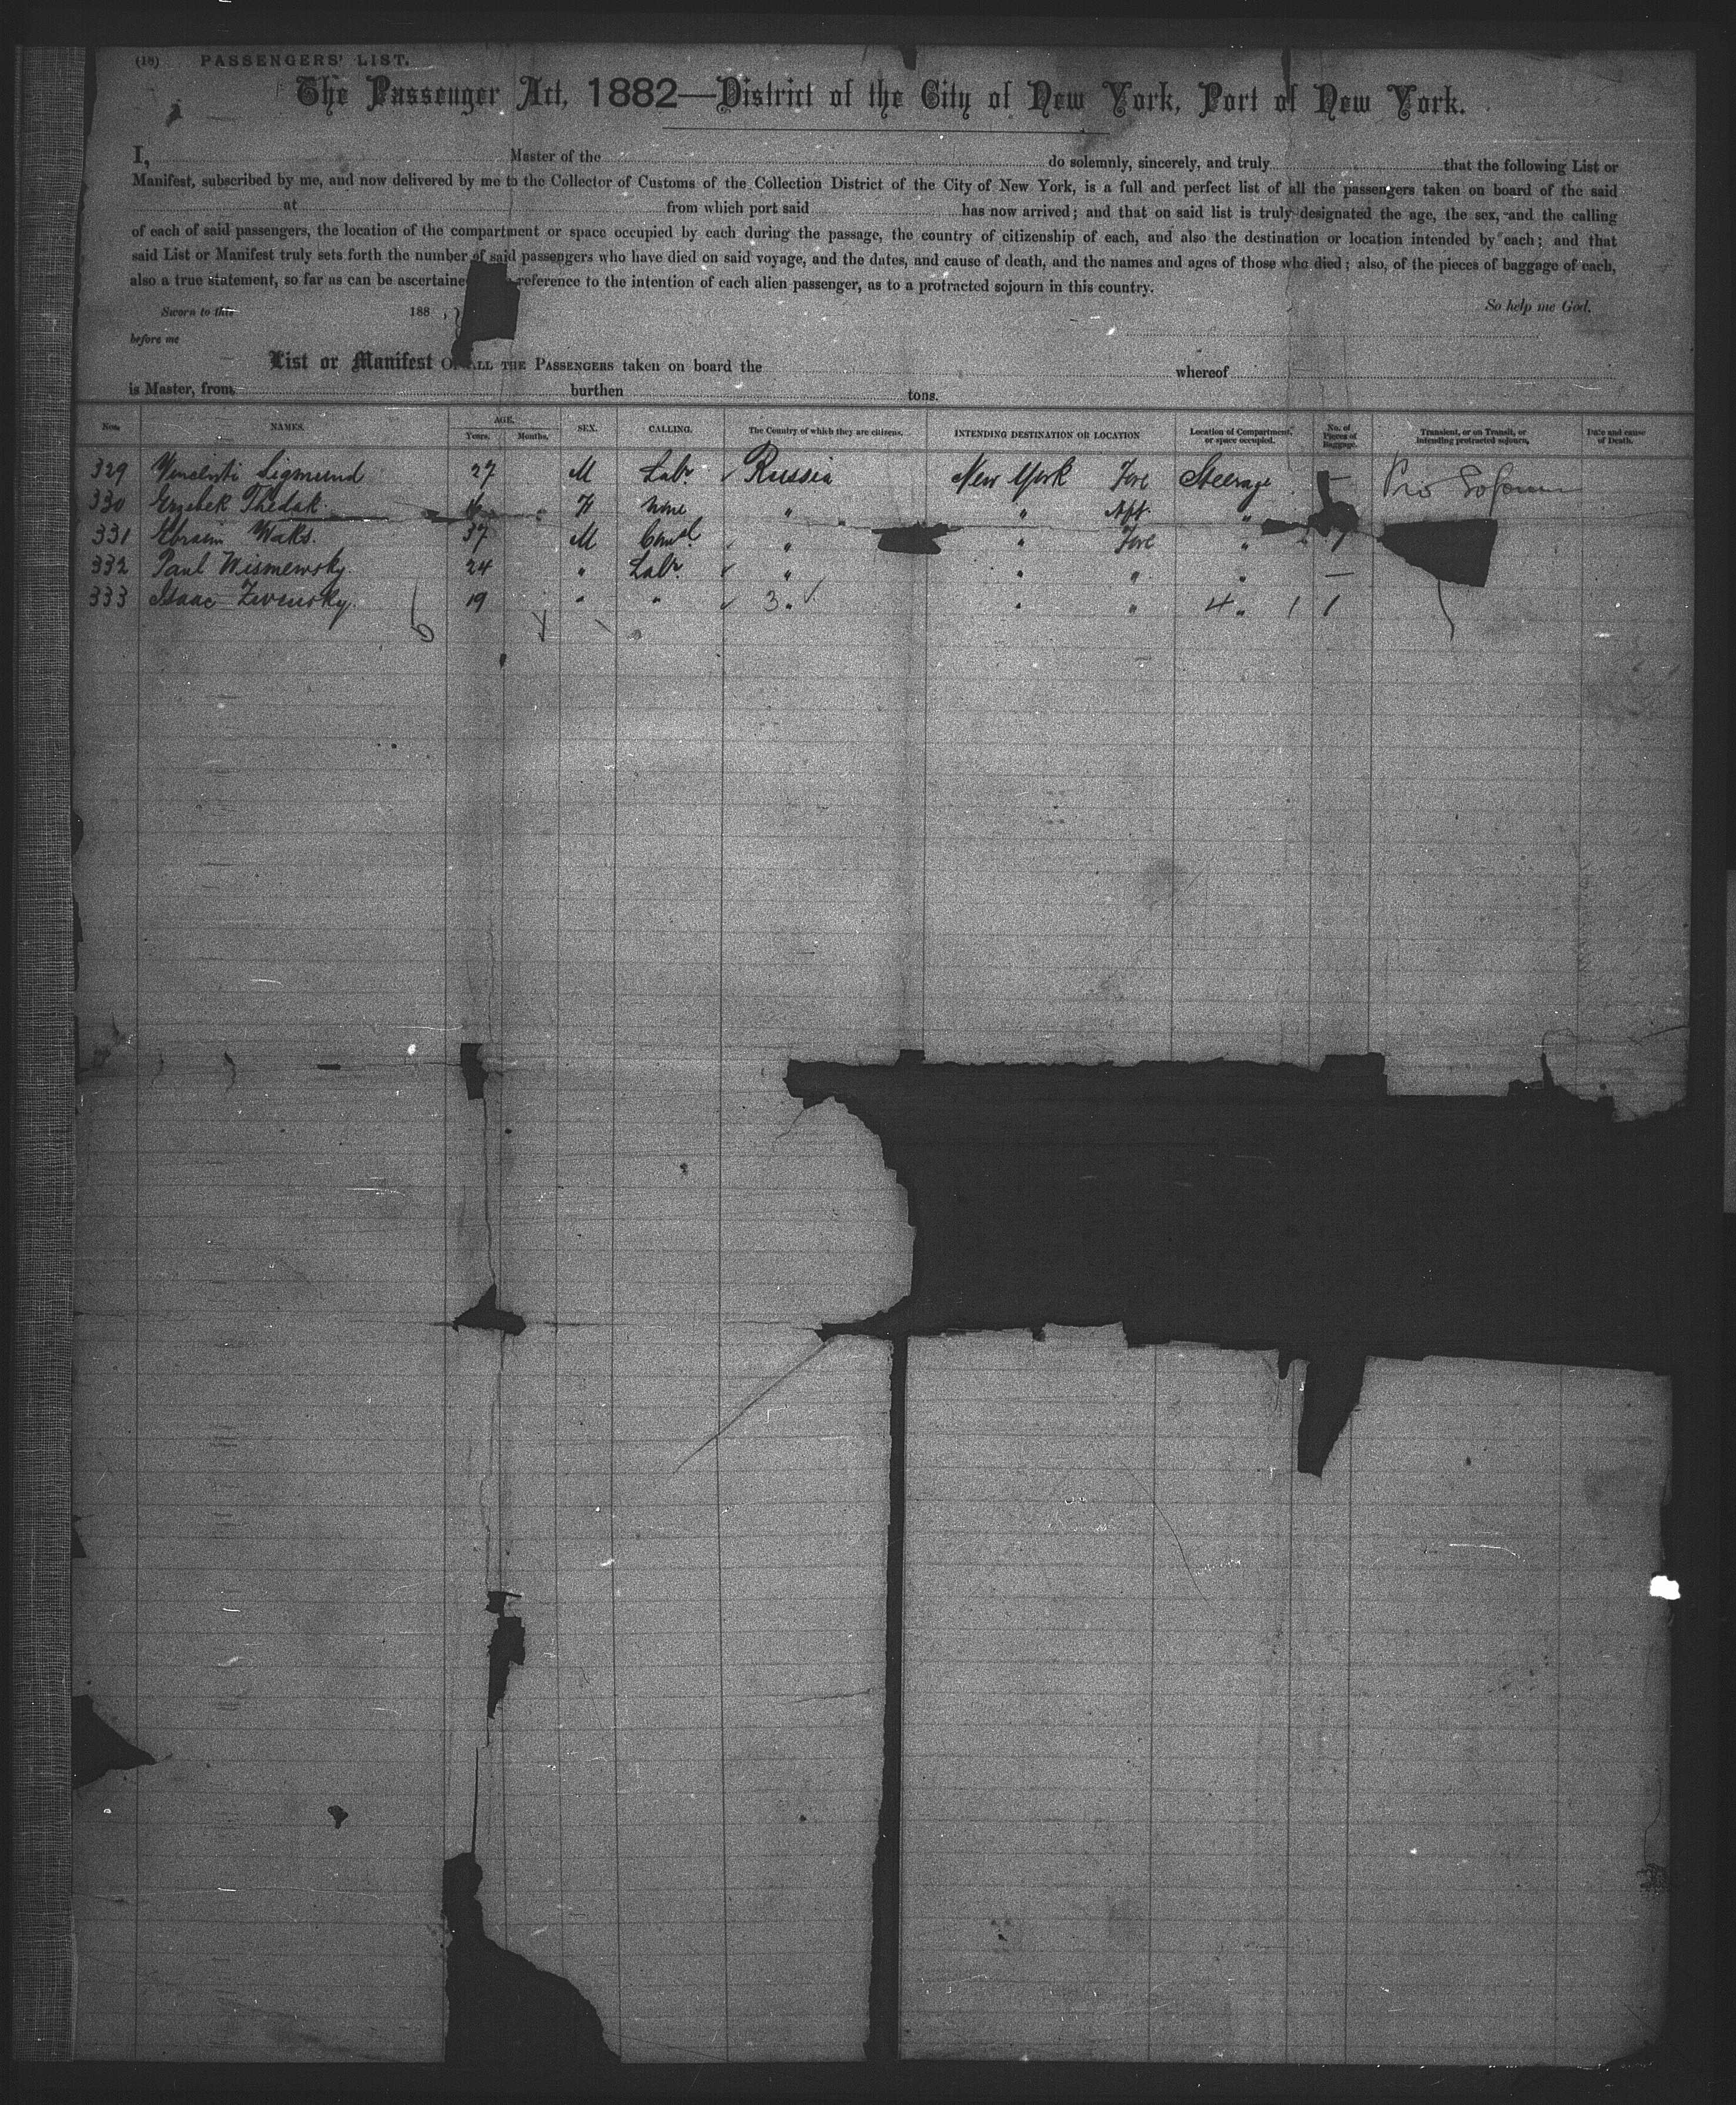 (18) PASSENGERS' LIST.
The Passenger Act, 1882—District of the City of New York, Port of New York.
I, Master of the do solemnly, sincerely, and truly that the following List or
Manifest, subscribed by me, and now delivered by me to the Collector of Customs of the Collection District of the City of New York, is a full and perfect list of all the passengers taken on board of the said
at from which port said has now arrived; and that on said list is truly designated the age, the sex, and the calling
of each of said passengers, the location of the compartment or space occupied by each during the passage, the country of citizenship of each, and also the destination or location intended by each; and that
said List or Manifest truly sets forth the number of said passengers who have died on said voyage, and the dates, and cause of death, and the names and ages of those who died; also, of the pieces of baggage of each,
also a true statement, so far as can be ascertaine reference to the intention of each alien passenger, as to a protracted sojourn in this country.
Sworn to this 188 , } So help me God.
before me
List or Manifest OF ALL THE PASSENGERS taken on board the whereof
is Master, from burthen tons.
Nos. NAMES. AGE. Years. Months. SEX. CALLING. The Country of which they are citizens. INTENDING DESTINATION OR LOCATION Location of Compartment, or space occupied. No. of Pieces of Baggage. Transient, or on Transit, or intending protracted sojourn. Date and cause of Death.
329 Sigmund 27 M Labr ✓ Russia New York Fore Steerage – Pro Sojourn
330 Thedak. F none " " Aft "
331 Abraim Waks. 37 M ✓ " " Fore " 1
332 Paul Wismewsky. 24 " Labr. ✓ " " " " –
333 Isaac Zevensky. 19 " " ✓ 3 " ✓ " " 4 " 1 1
6